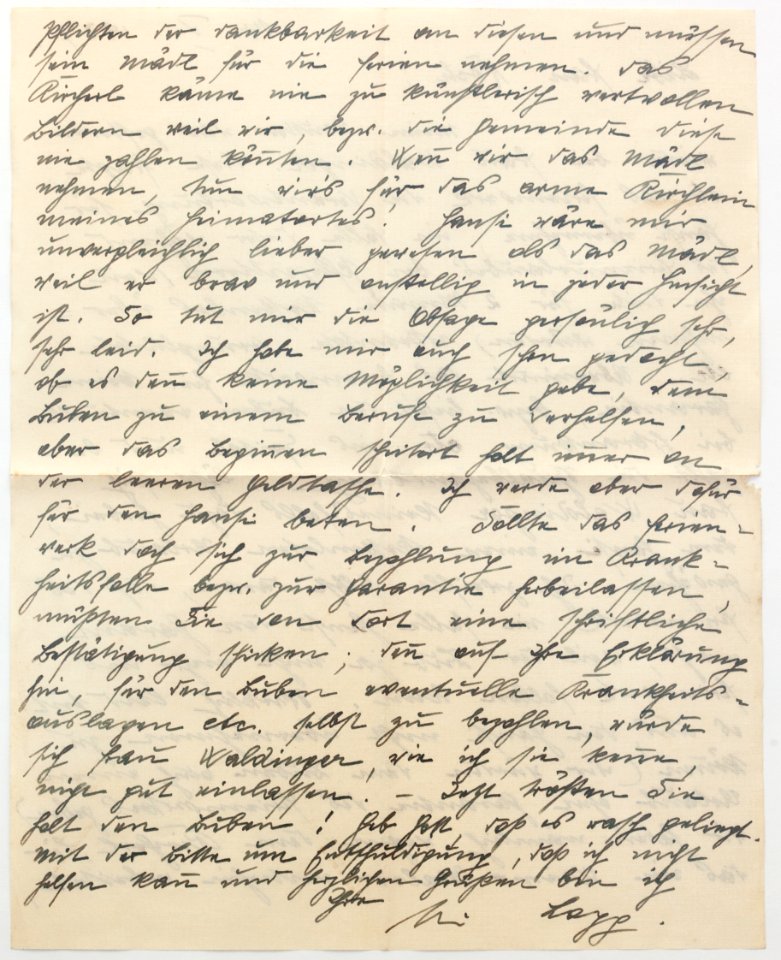 Pflichten der Dankbarkeit an diesen und müssen
sein Mädl für die Ferien nehmen. Das
Kircherl käme nie zu künstlerisch wertvollen
Bildern weil wir, bezw. die Gemeinde diese
nie zahlen könnten. Wenn wir das Mädl
nehmen, tun wir's für das arme Kirchlein
meines Heimatortes! Hansi wäre mir
unvergleichlich lieber gewesen als das Mädl,
weil er brav und anstellig in jeder Hinsicht
ist. So tut mir die Absage persönlich sehr,
sehr leid. Ich habe mir auch schon gedacht,
ob es denn keine Möglichkeit gebe, dem
Buben zu einem Berufe zu verhelfen,
aber das Beginnen scheitert halt immer an
der leeren Geldtasche. Ich werde aber dafür
für den Hansi beten. Sollte das Ferien-
werk doch sich zur Bezahlung im Krank-
heitsfalle bezw. zur Garantie herbeilassen,
müßten Sie von dort eine schriftliche
Bestätigung schicken; denn auf Ihre Erklärung
hin, für den Buben eventuelle Krankheits-
auslagen etc. selbst zu bezahlen, würde
sich Frau Waldinger, wie ich sie kenne,
nicht gut einlassen. – Jetzt trösten Sie
halt den Buben! Geb Gott, daß es rasch gelingt.
Mit der Bitte um Entschuldigung, daß ich nicht
helfen kann und herzlichen Grüßen bin ich
Ihre